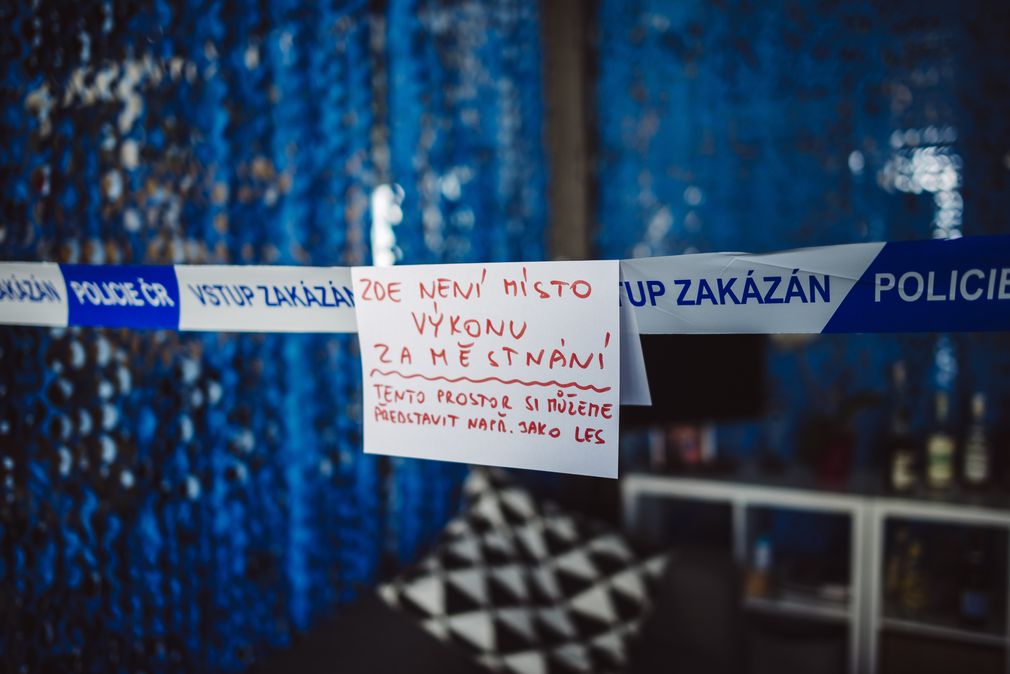 ZAKÁZÁN POLICIE ČR VSTUP ZAKÁZÁN
ZDE NENÍ MÍSTO
VÝKONU
ZAMĚSTNÁNÍ
TENTO PROSTOR SI MŮŽEME
PŘEDSTAVIT NAPŘ. JAKO LES
VSTUP ZAKÁZÁN POLICIE